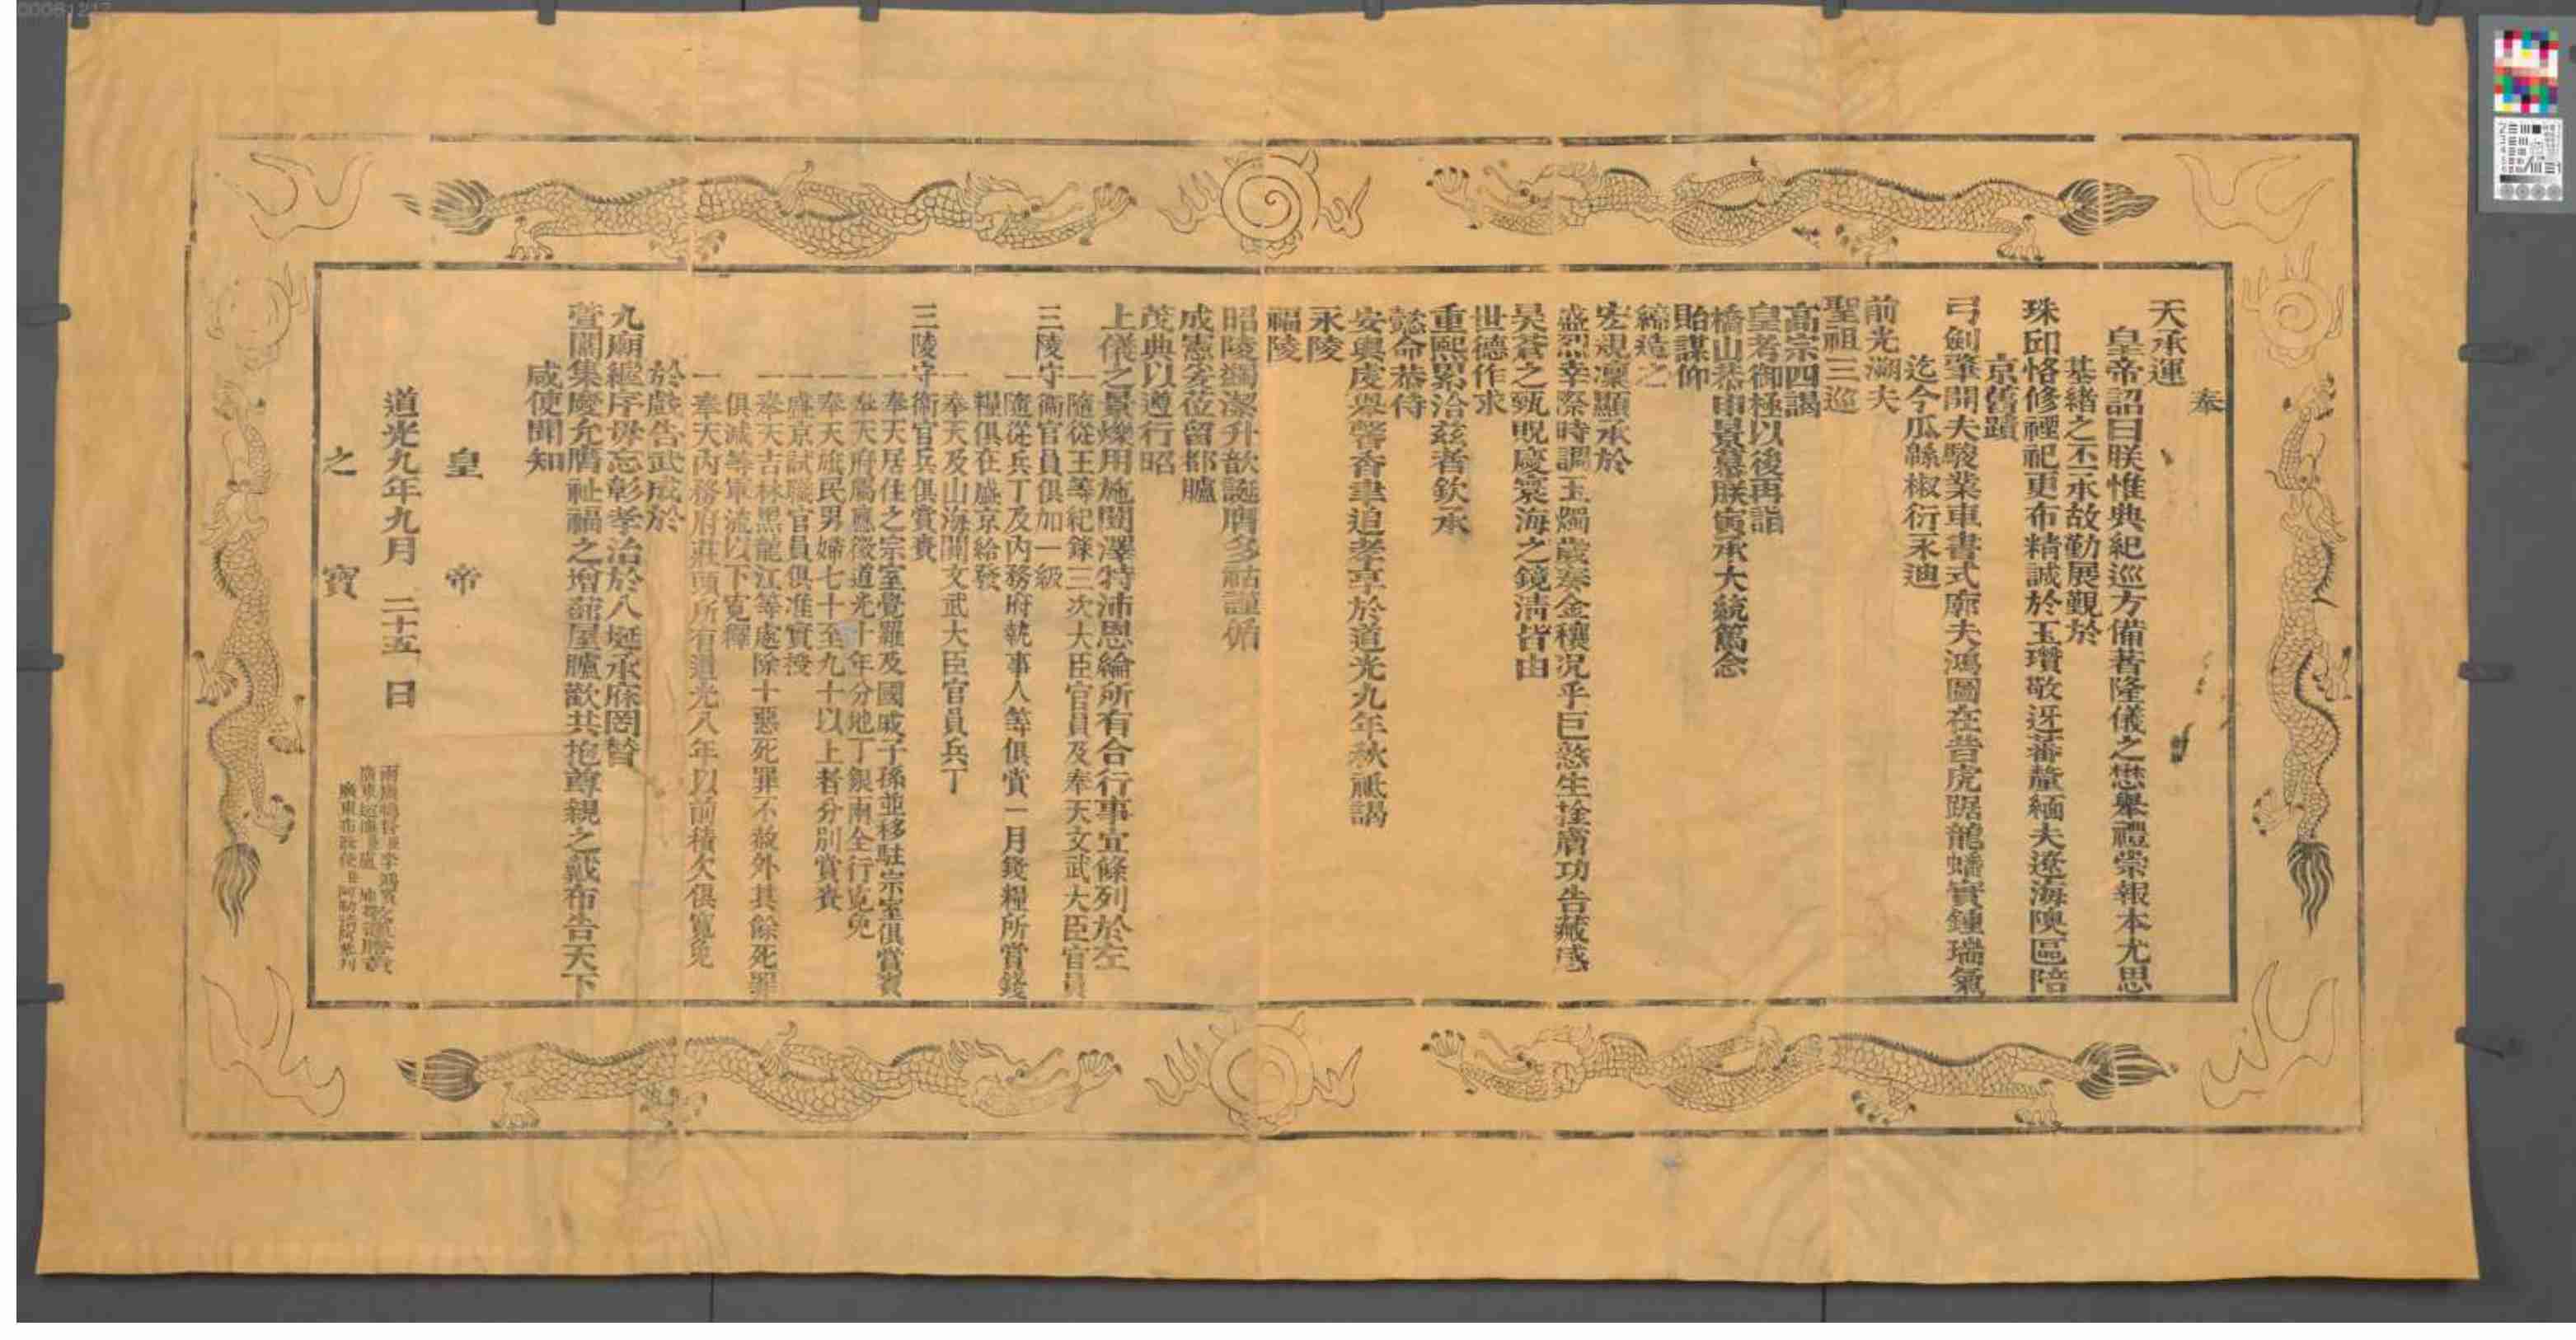 奉
天承運
皇帝詔曰朕惟典紀巡方備著隆儀之懋舉禮崇報本尤思
基緒之丕承故勤展覲於
珠邱恪修禋祀更布精誠於玉瓚敬迓蕃釐緬夫遼海隩區陪
京舊蹟
弓劍肇開夫駿業車書式廓夫鴻圖在昔虎踞龍蟠實鍾瑞氣
迄今瓜緜椒衍永迪
前光溯夫
聖祖三巡
高宗四謁
皇考御極以後再詣
橋山恭申景慕朕寅承大統篤念
貽謀仰
締造之
宏規凜顯承於
盛烈幸際時調玉燭歲奏金穰況乎巨憝生擒膚功告蕆感
昊蒼之甄貺慶寰海之鏡清皆由
世德作求
重熙累洽茲者欽承
懿命恭侍
安輿虔舉馨香聿追孝享於道光九年秋祗謁
永陵
福陵
昭陵蠲潔升歆誕膺多祜謹循
成憲爰莅留都臚
茂典以遵行昭
上儀之景爍用施闓澤特沛恩綸所有合行事宜條列於左
一隨從王等紀錄三次大臣官員及奉天文武大臣官員
三陵守衞官員俱加一級
一隨從兵丁及內務府執事人等俱賞一月錢糧所賞錢
糧俱在盛京給發
一奉天及山海關文武大臣官員兵丁
三陵守衞官兵俱賞賚
一奉天居住之宗室覺羅及國戚子孫並移駐宗室俱賞賚
一奉天府屬應徵道光十年分地丁銀兩全行寬免
一奉天旗民男婦七十至九十以上者分別賞賚
一盛京試職官員俱准實授
一奉天吉林黑龍江等處除十惡死罪不赦外其餘死罪
俱減等軍流以下寬釋
一奉天內務府莊頭所有道光八年以前積欠俱寬免
於戲告武成於
九廟纘序毋忘彰孝治於八埏承庥罔替
萱闈集慶允膺祉福之增蔀屋臚歡共抱尊親之戴布告天下
咸使聞知
皇帝
道光九年九月 二十五 日
之寶